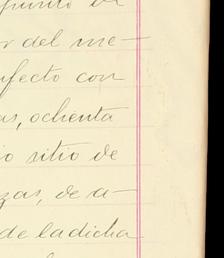 de
r del me-
fecto con
as, ochenta
o sitio de
zas, de a-
de la dicha